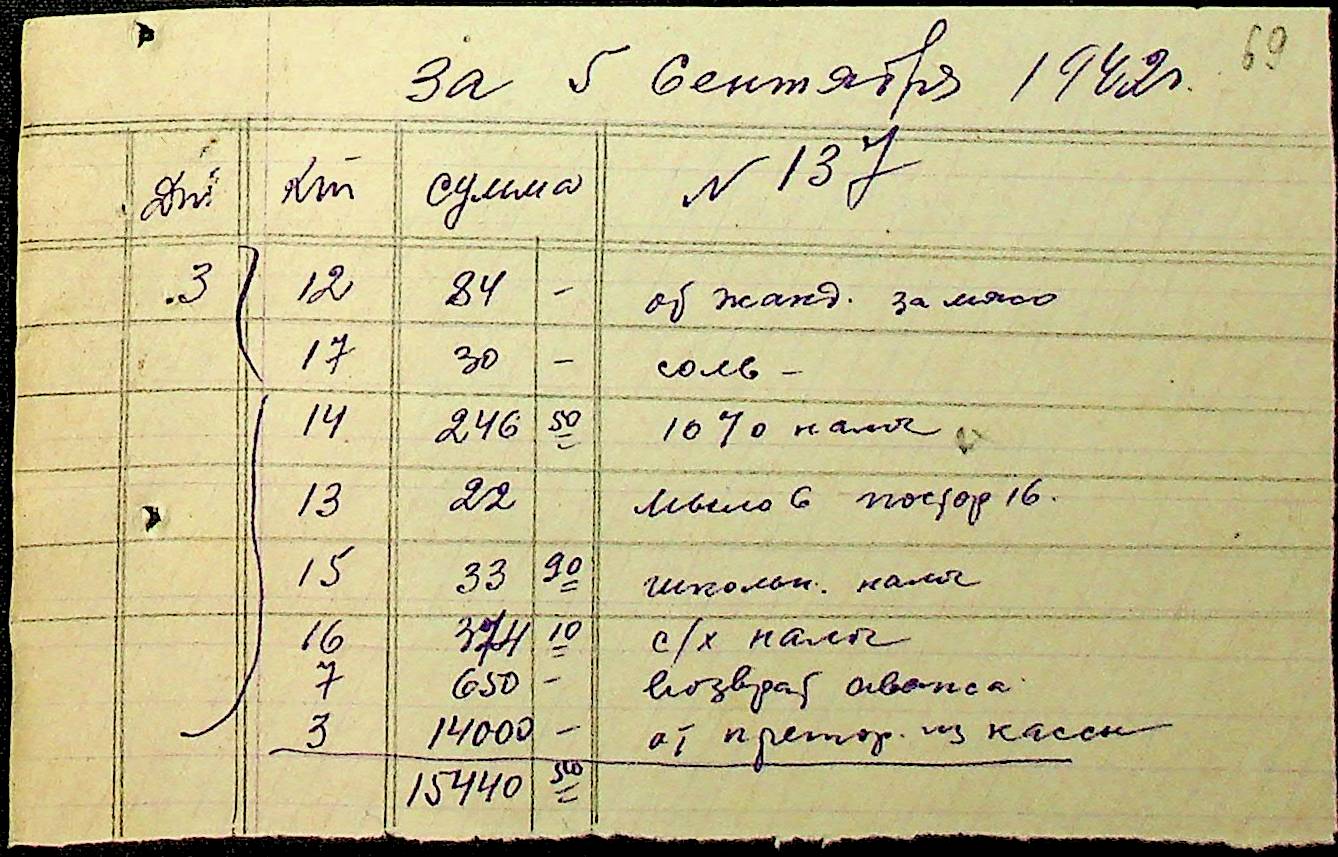 69
За 5 Сентября 1942 г.
Дт Кт сумма № 137
3 12 84 - от жанд. за мясо
17 30 - соль -
14 246 50 10 % налог
13 22 мыло 6 постор 16.
15 33 90 школьн. налог
16 374 10 с/х налог
7 650 - возврат аванса
3 14000 - от претор. из кассы
15440 50